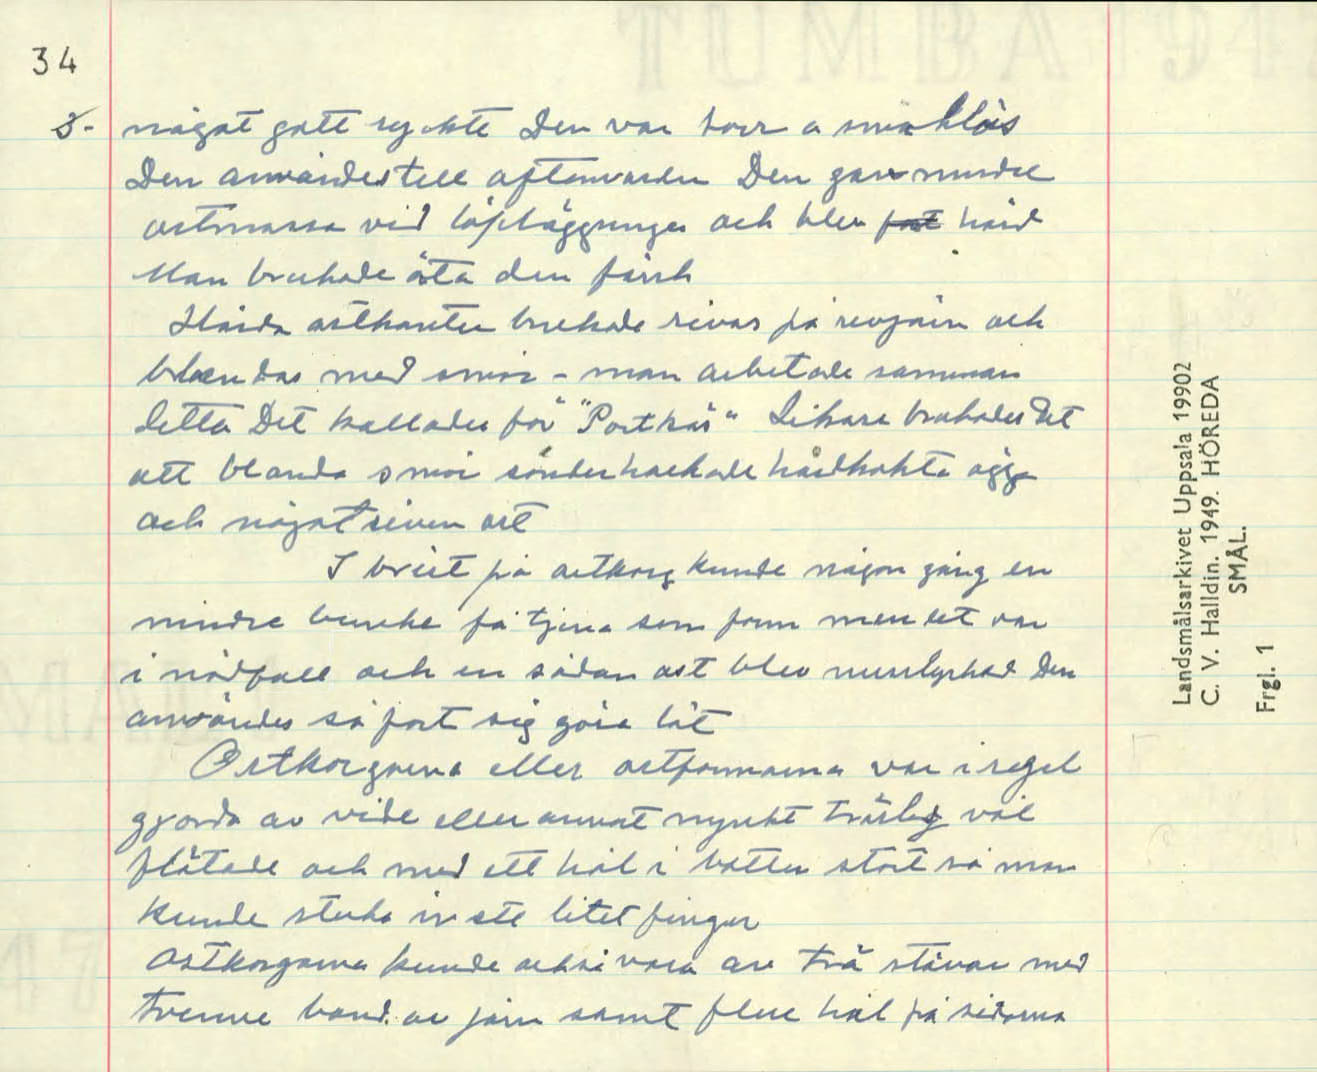 34
8-
något gott rykte Den var torr o smaklös
Den användes till aftonvarden Den gav mindre
ostmassa vid löpläggningen och blev fort hård
Man brukade äta den färsk
Hårda ostkanter brukade rivas på rivjärn och
blandas med smör - man arbetade samman
detta Det kallades för "Postkäs" Likaså brukades det
att blanda smör sönderhackade hårdkokta ägg
och något riven ost
I brist på ostkorg kunde någon gång en
mindre bunke få tjäna som form men det var
i nödfall och en sådan ost blev misslyckad Den
användes så fort sig göra lät
Ostkorgarna eller ostformarna var i regel
gjorda av vide eller annat mjukt träslag väl
flätade och med ett hål i botten stort så man
kunde sticka in ett litet finger
Ostkorgarna kunde också vara av trä stävar med
tvenne band av järn samt flere hål på sidorna
Landsmålsarkivet Uppsala 19902
C. V. Halldin. 1949. HÖREDA
SMÅL.
Frgl. 1
TUMBA 194